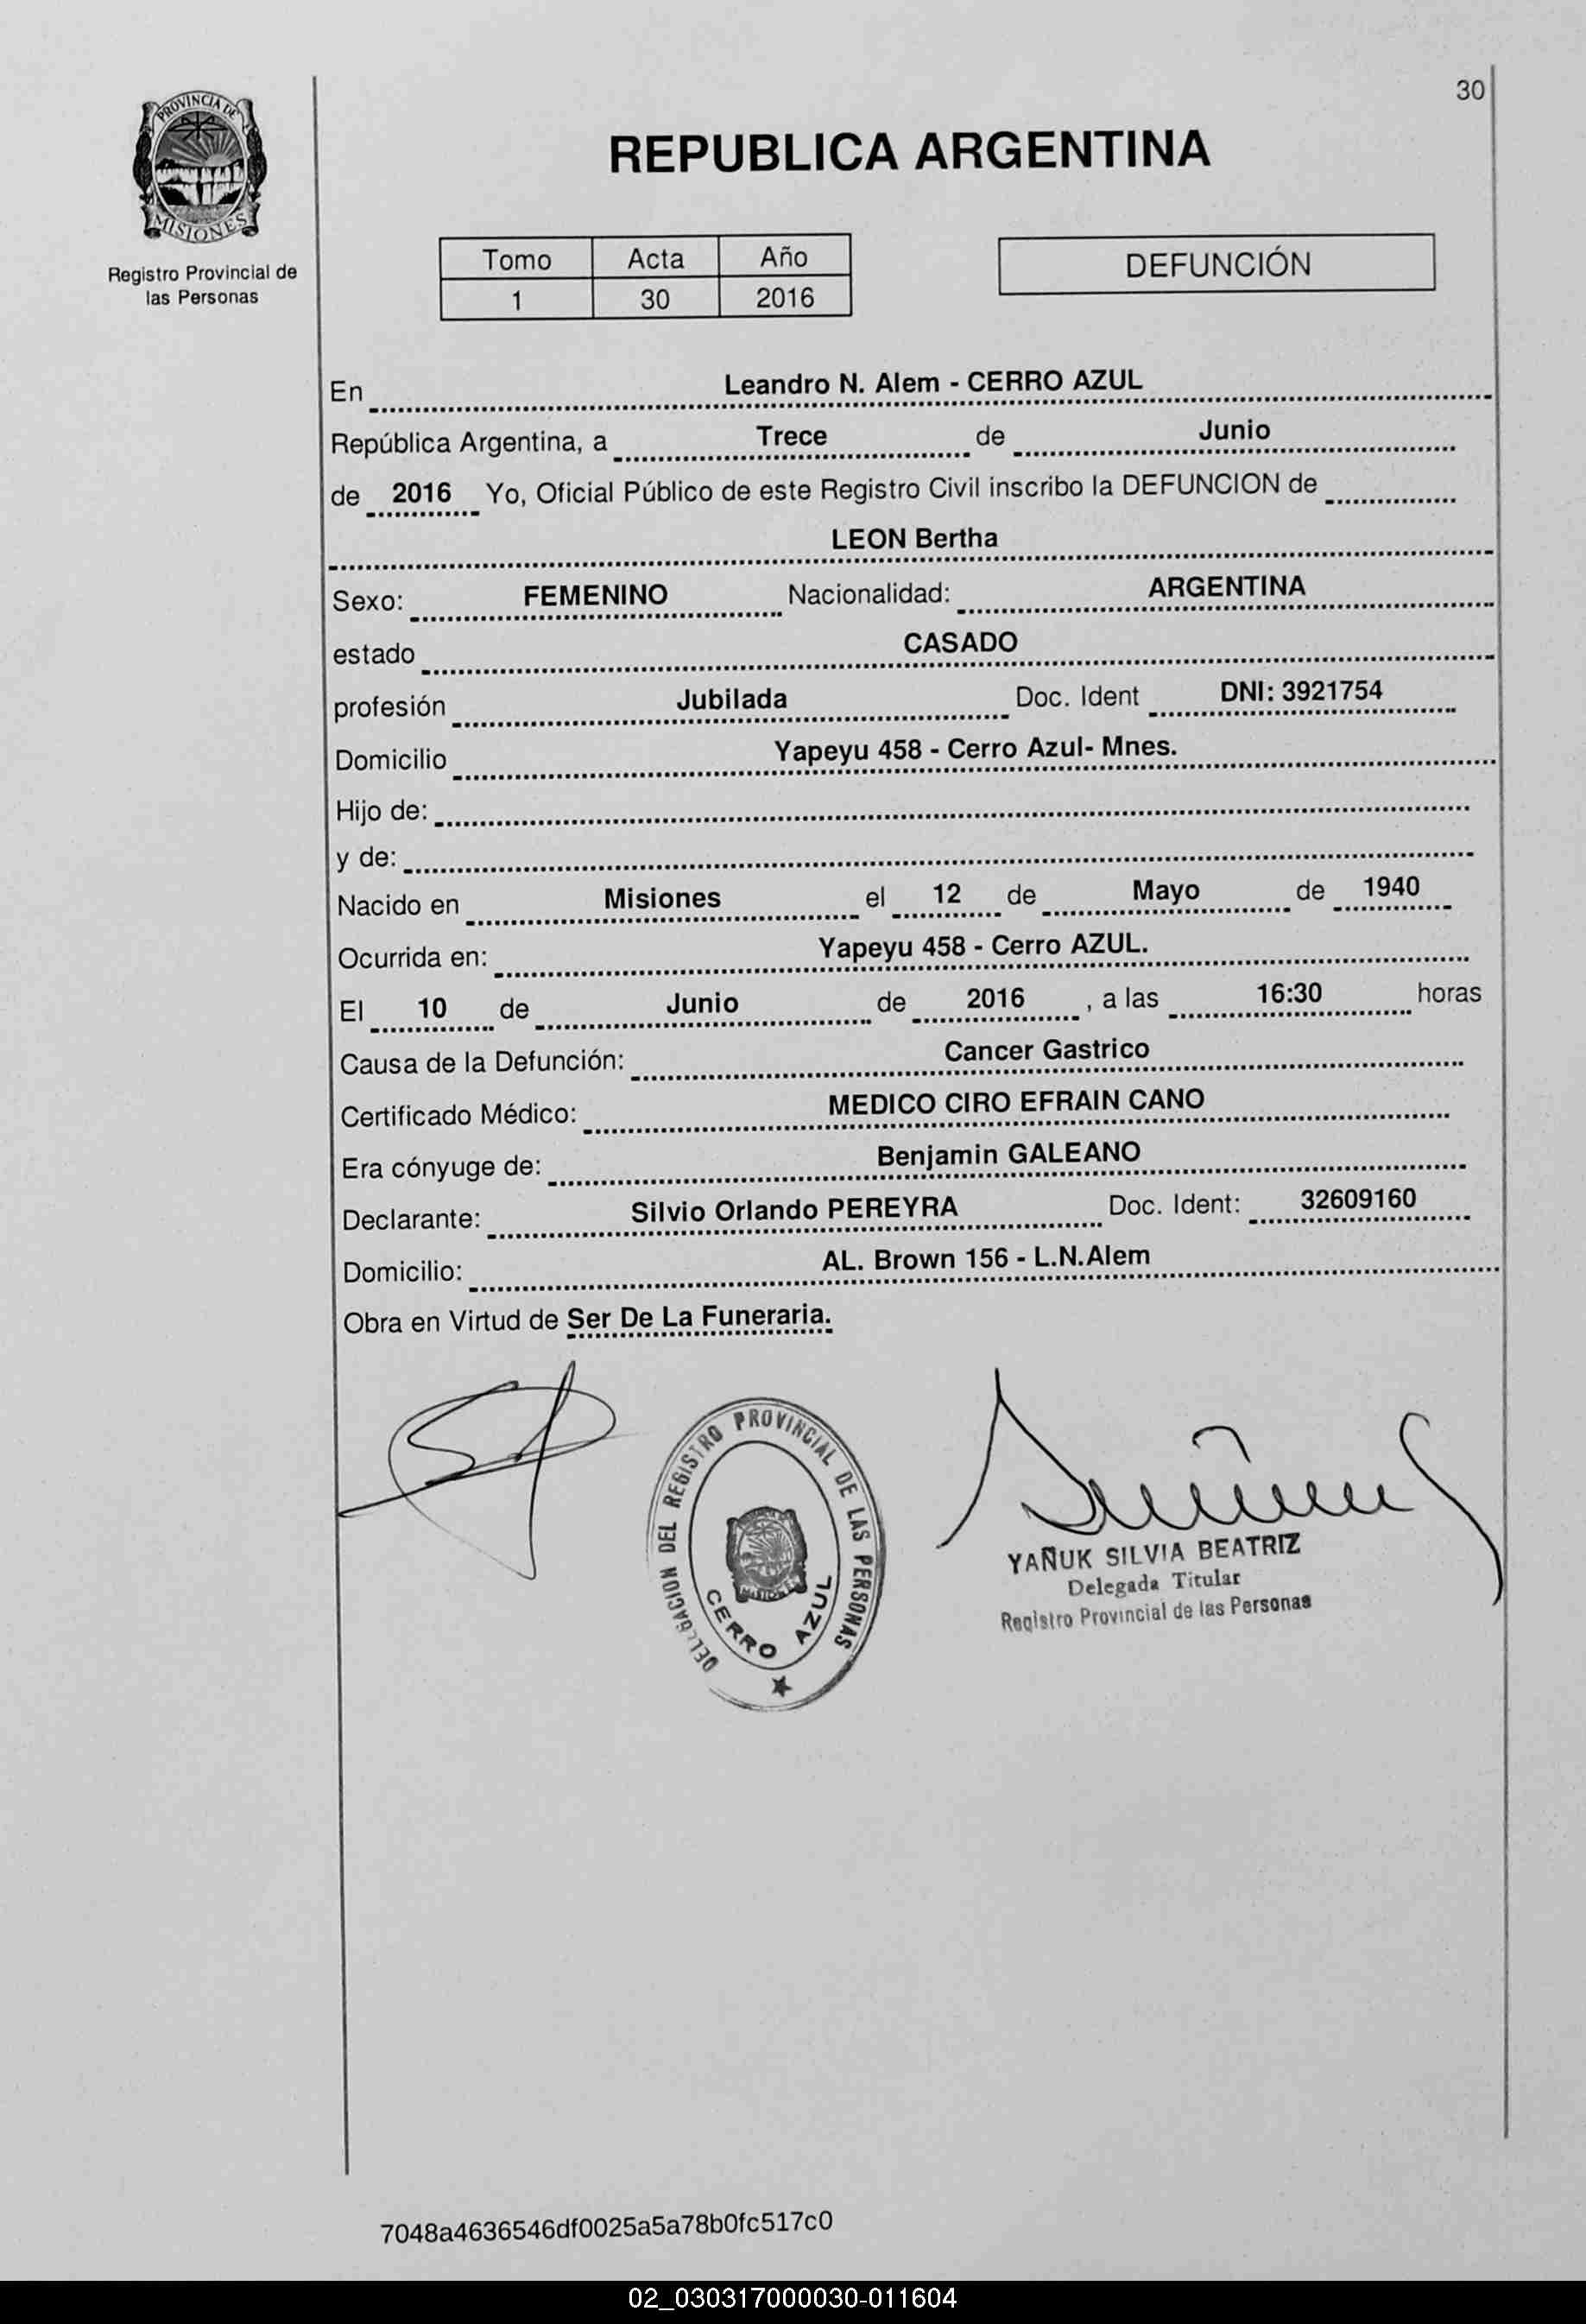 30
PROVINCIA DE
MISIONES
Registro Provincial de
las Personas
REPUBLICA ARGENTINA
Tomo Acta Año
1 30 2016
DEFUNCIÓN
En Leandro N. Alem - CERRO AZUL
República Argentina, a Trece de Junio
de 2016 Yo, Oficial Público de este Registro Civil inscribo la DEFUNCION de
LEON Bertha
Sexo: FEMENINO Nacionalidad: ARGENTINA
estado CASADO
profesión Jubilada Doc. Ident DNI: 3921754
Domicilio Yapeyu 458 - Cerro Azul- Mnes.
Hijo de:
y de:
Nacido en Misiones el 12 de Mayo de 1940
Ocurrida en: Yapeyu 458 - Cerro AZUL.
El 10 de Junio de 2016 , a las 16:30 horas
Causa de la Defunción: Cancer Gastrico
Certificado Médico: MEDICO CIRO EFRAIN CANO
Era cónyuge de: Benjamin GALEANO
Declarante: Silvio Orlando PEREYRA Doc. Ident: 32609160
Domicilio: AL. Brown 156 - L.N.Alem
Obra en Virtud de Ser De La Funeraria.
DELEGACION DEL REGISTRO PROVINCIAL DE LAS PERSONAS
CERRO AZUL
YAÑUK SILVIA BEATRIZ
Delegada Titular
Registro Provincial de las Personas
7048a4636546df0025a5a78b0fc517c0
02_030317000030-011604